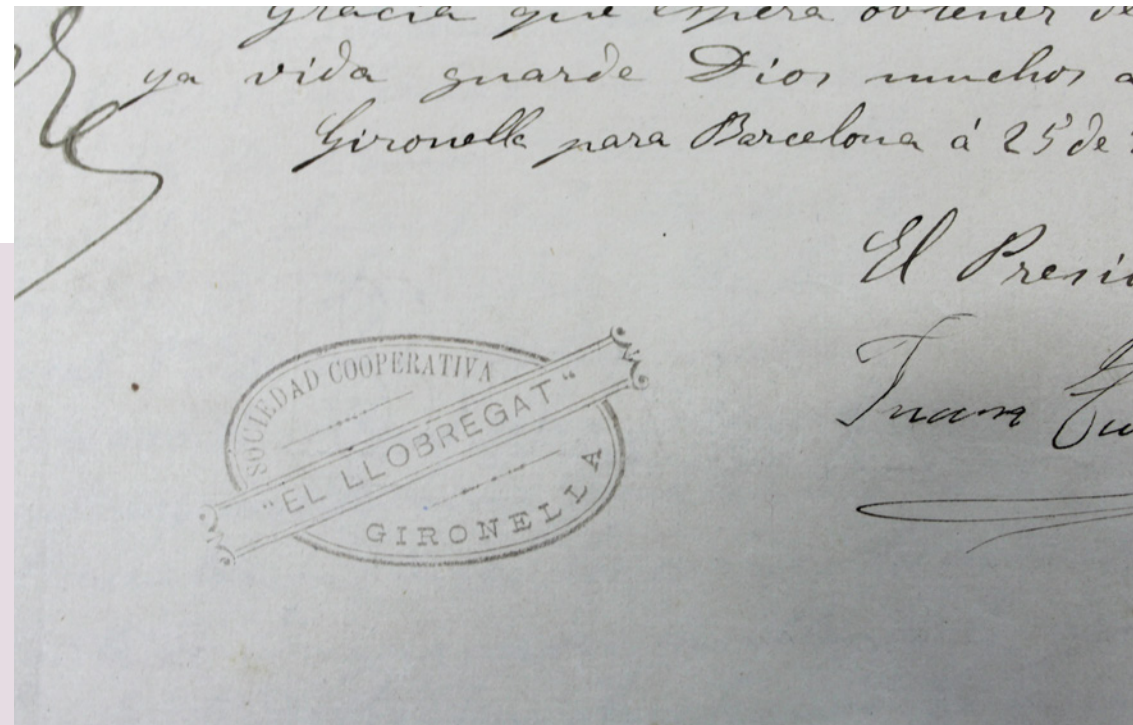 gracia que espera obtener de
ya vida guarde Dios muchos a
Gironella para Barcelona á 25 de
El Presi
Juan
SOCIEDAD COOPERATIVA
"EL LLOBREGAT"
GIRONELLA